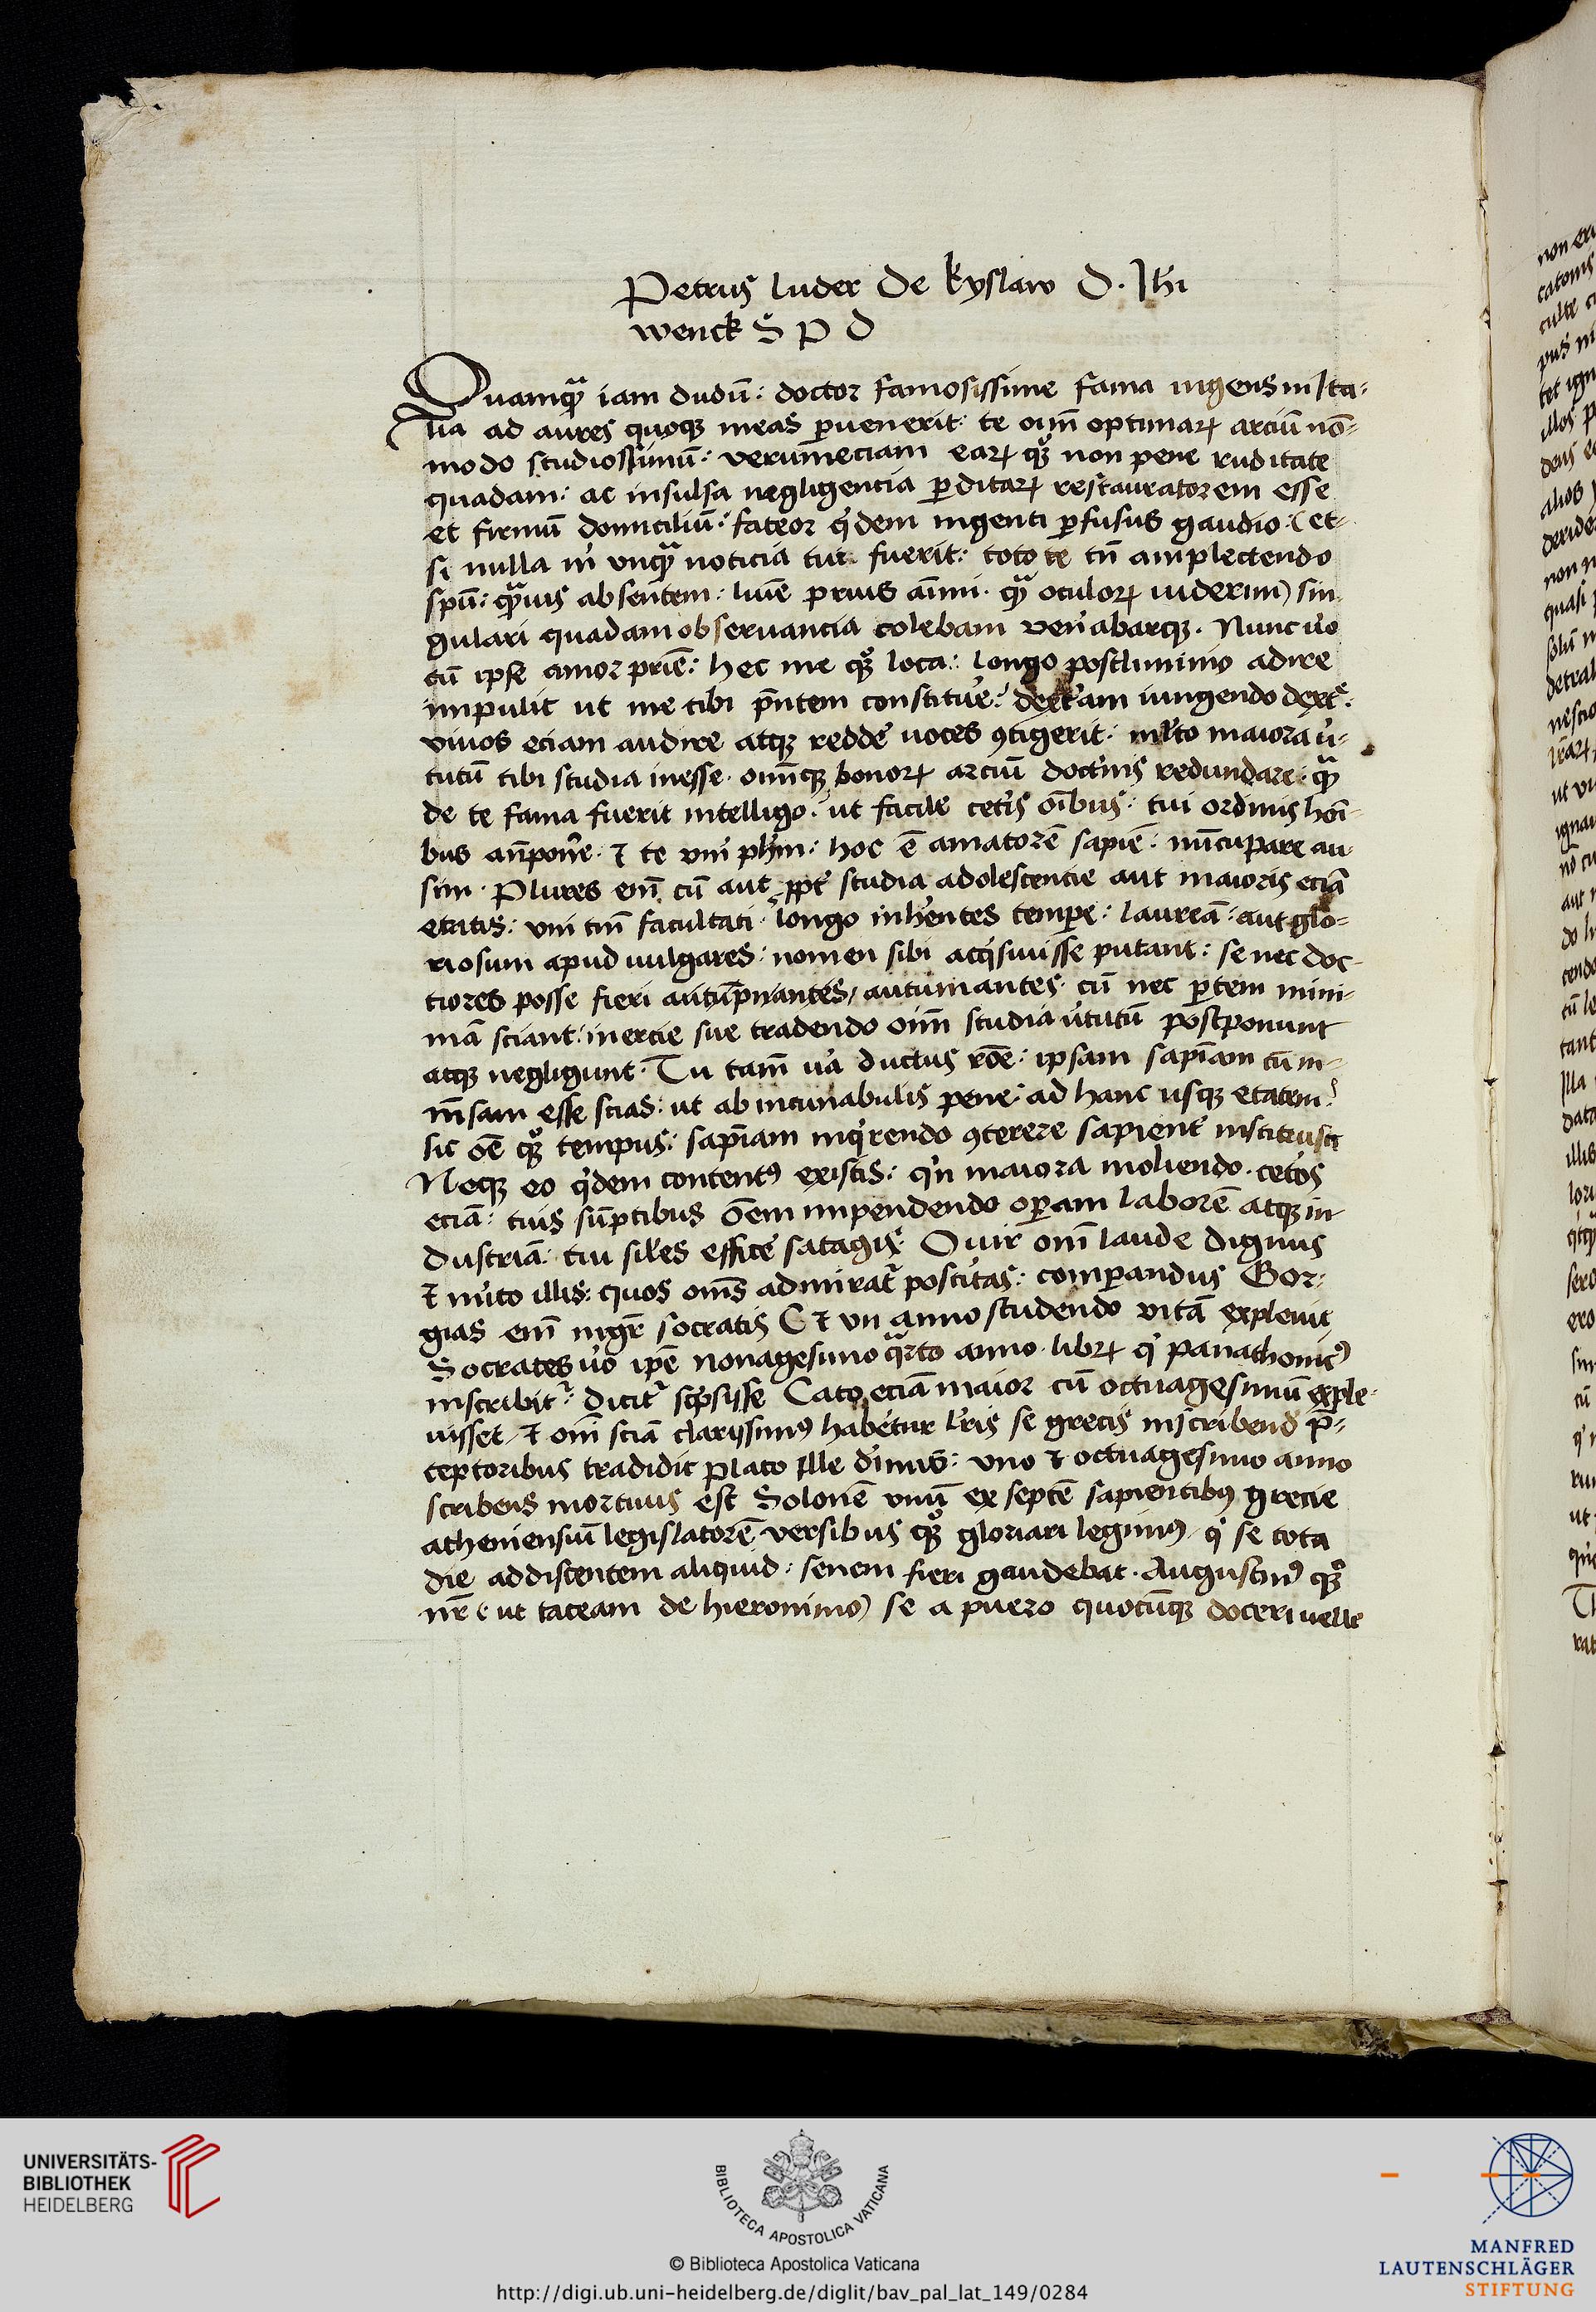 Petrus luder De kyslaw D. Jhi
wenck S P D
Quamq̃ iam dudū: doctor famosissime fama ingens in Ita-
lia ad aures quoqȝ meas ꝑuenerit: te oīm optimaꝝ arciū nō-
modo studiosissimū: verumeciam eaꝝ qȝ non pene ruditate
quadam: ac insulsa negligencia ꝑditaꝝ restauratorem esse
et firmū domicilium: fateor qͥdem ingenti ꝑfusus gaudio: (et-
si nulla m̍ vnqᷓ noticia tui fuerit: toto te tn̄ amplectendo
spū: qᷓuis absentem: lumē prius aīmi qᷓ oculoꝝ uiderim) sin
gulari quadam obseruancia colebam ven̍abarqȝ. Nunc ůo
cū ipse amor pr̄ie: hec me qȝ loca: longo postliminio adire
impulit ut me tibi p̄ntem constitue̍: dext̍am iungendo dext̍e:
viuos eciam audire atqȝ redde̍ uoces ꝯtigerit: ml̍to maiora u̍-
tutū tibi studia inesse omīqȝ bonoꝝ arciū doct̍nis redundare: qᷓ
de te fama fuerit intelligo: ut facile cet̍is oībus: tui ordinis hoī-
bus an̄pone̍: ⁊ te vni phm̄: hoc ē amatorē sapiē: nūcupare au-
sim. Plures em̄ cū aut ꝓpt̍ studia adolescencie aut maioris eciā
etatis: vni tm̄ facultati: longo inh̍entes tempe̍: laureā: aut glo-
riosum apud uulgares: nomen sibi acqͥsiuisse putant: se nec doc-
tiores posse fieri autumantes cū nec ꝑtem mini-
mā sciant: inercie sue tradendo oīm studia u̍tutū postponunt
atqȝ negligunt. Tu tam̄ u̍a ductus rōe: ipsam sapīam cū in-
mēsam esse scias: ut ab incunabulis pene: ad hanc usqȝ etatem:
sic ōe qȝ tempus: sapīam inqͥrendo ꝯterere sapient̍ instituisti
Neqȝ eo qͥdem contentꝰ existis: qͥn maiora moliendo. cet̍os
eciā: tuis sūptibus ōem impendendo oꝑam laborē atqȝ in-
dustriā: tui sil̍es effice̍ satagis. O uir om̄i laude dignus
⁊ m̍ito illis: quos om̄s admirat̍ post̍itas: comꝑandus Gor-
gias em̄ mgr̄ socratis C ⁊ vn anno studendo vitā expleuit
Socrates ůo ip̄e nonagesimo qᷓrto anno libꝝ qͥ panathonicꝰ
inscribit̍: dicit̍ scͥpsisse Cato eciā maior cū octuagesimū exple-
uisset ⁊ om̄i sciā clarissimꝰ habe̍tur lr̍is se grecis inscribend̍ p̄-
ceptoribus tradidit Plato ille diuinus: vno ⁊ octuagesimo anno
scribens mortuus est Solonē vnū ex septē sapientibꝰ grecie
atheniensiū legislatorē versibus qȝ gloriari legimꝰ qͥ se tota
die addiscentem aliquid: senem fieri gaudebat. Augustinꝰ qȝ
nr̄ (ut taceam de hieronimo) se a puero quocūqȝ doceri uelle
UNIVERSITÄTS-
BIBLIOTHEK
HEIDELBERG
BIBLIOTECA APOSTOLICA VATICANA
© Biblioteca Apostolica Vaticana
http://digi.ub.uni-heidelberg.de/diglit/bav_pal_lat_149/0284
MANFRED
LAUTENSCHLÄGER
STIFTUNG